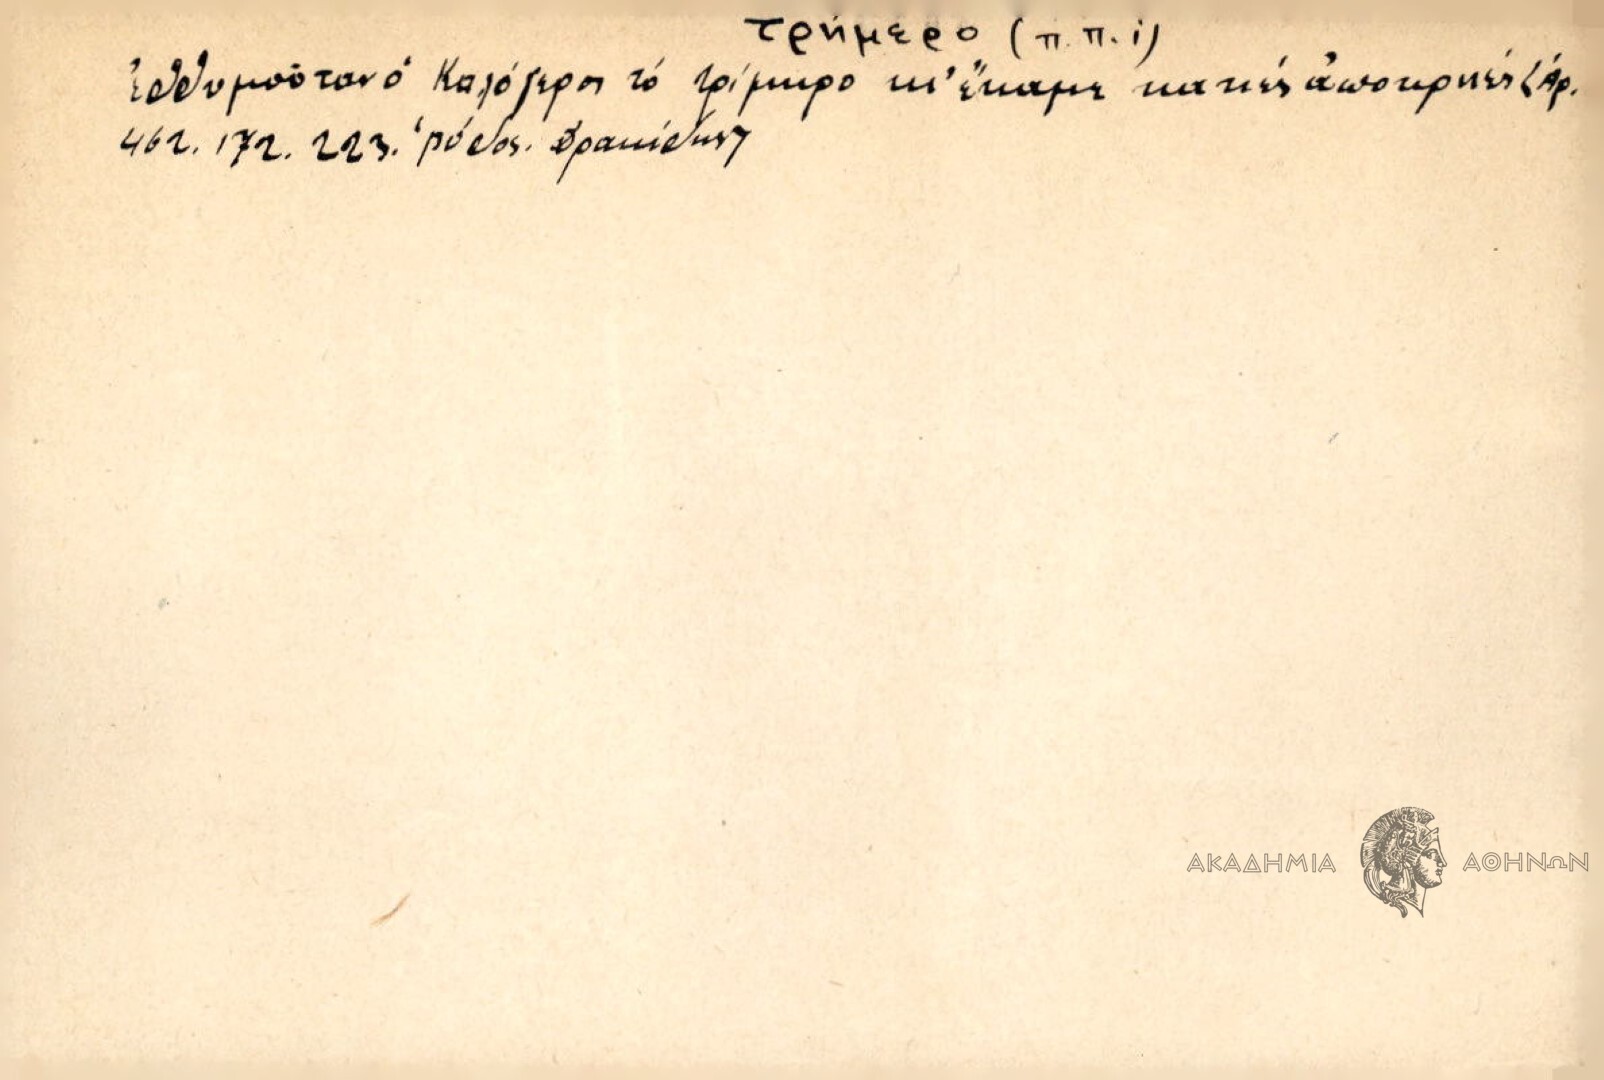 τρήμερο (π. π. i)
Ἐθθυμοῦταν ὁ Καλόγερος τό τρίμερο κι' ἔκαμε κατιές ἀποκριές (Ἀρ.
462. 172. 223. Ῥόδος. Δρακίδης)
ΑΚΑΔΗΜΙΑ ΑΘΗΝΩΝ